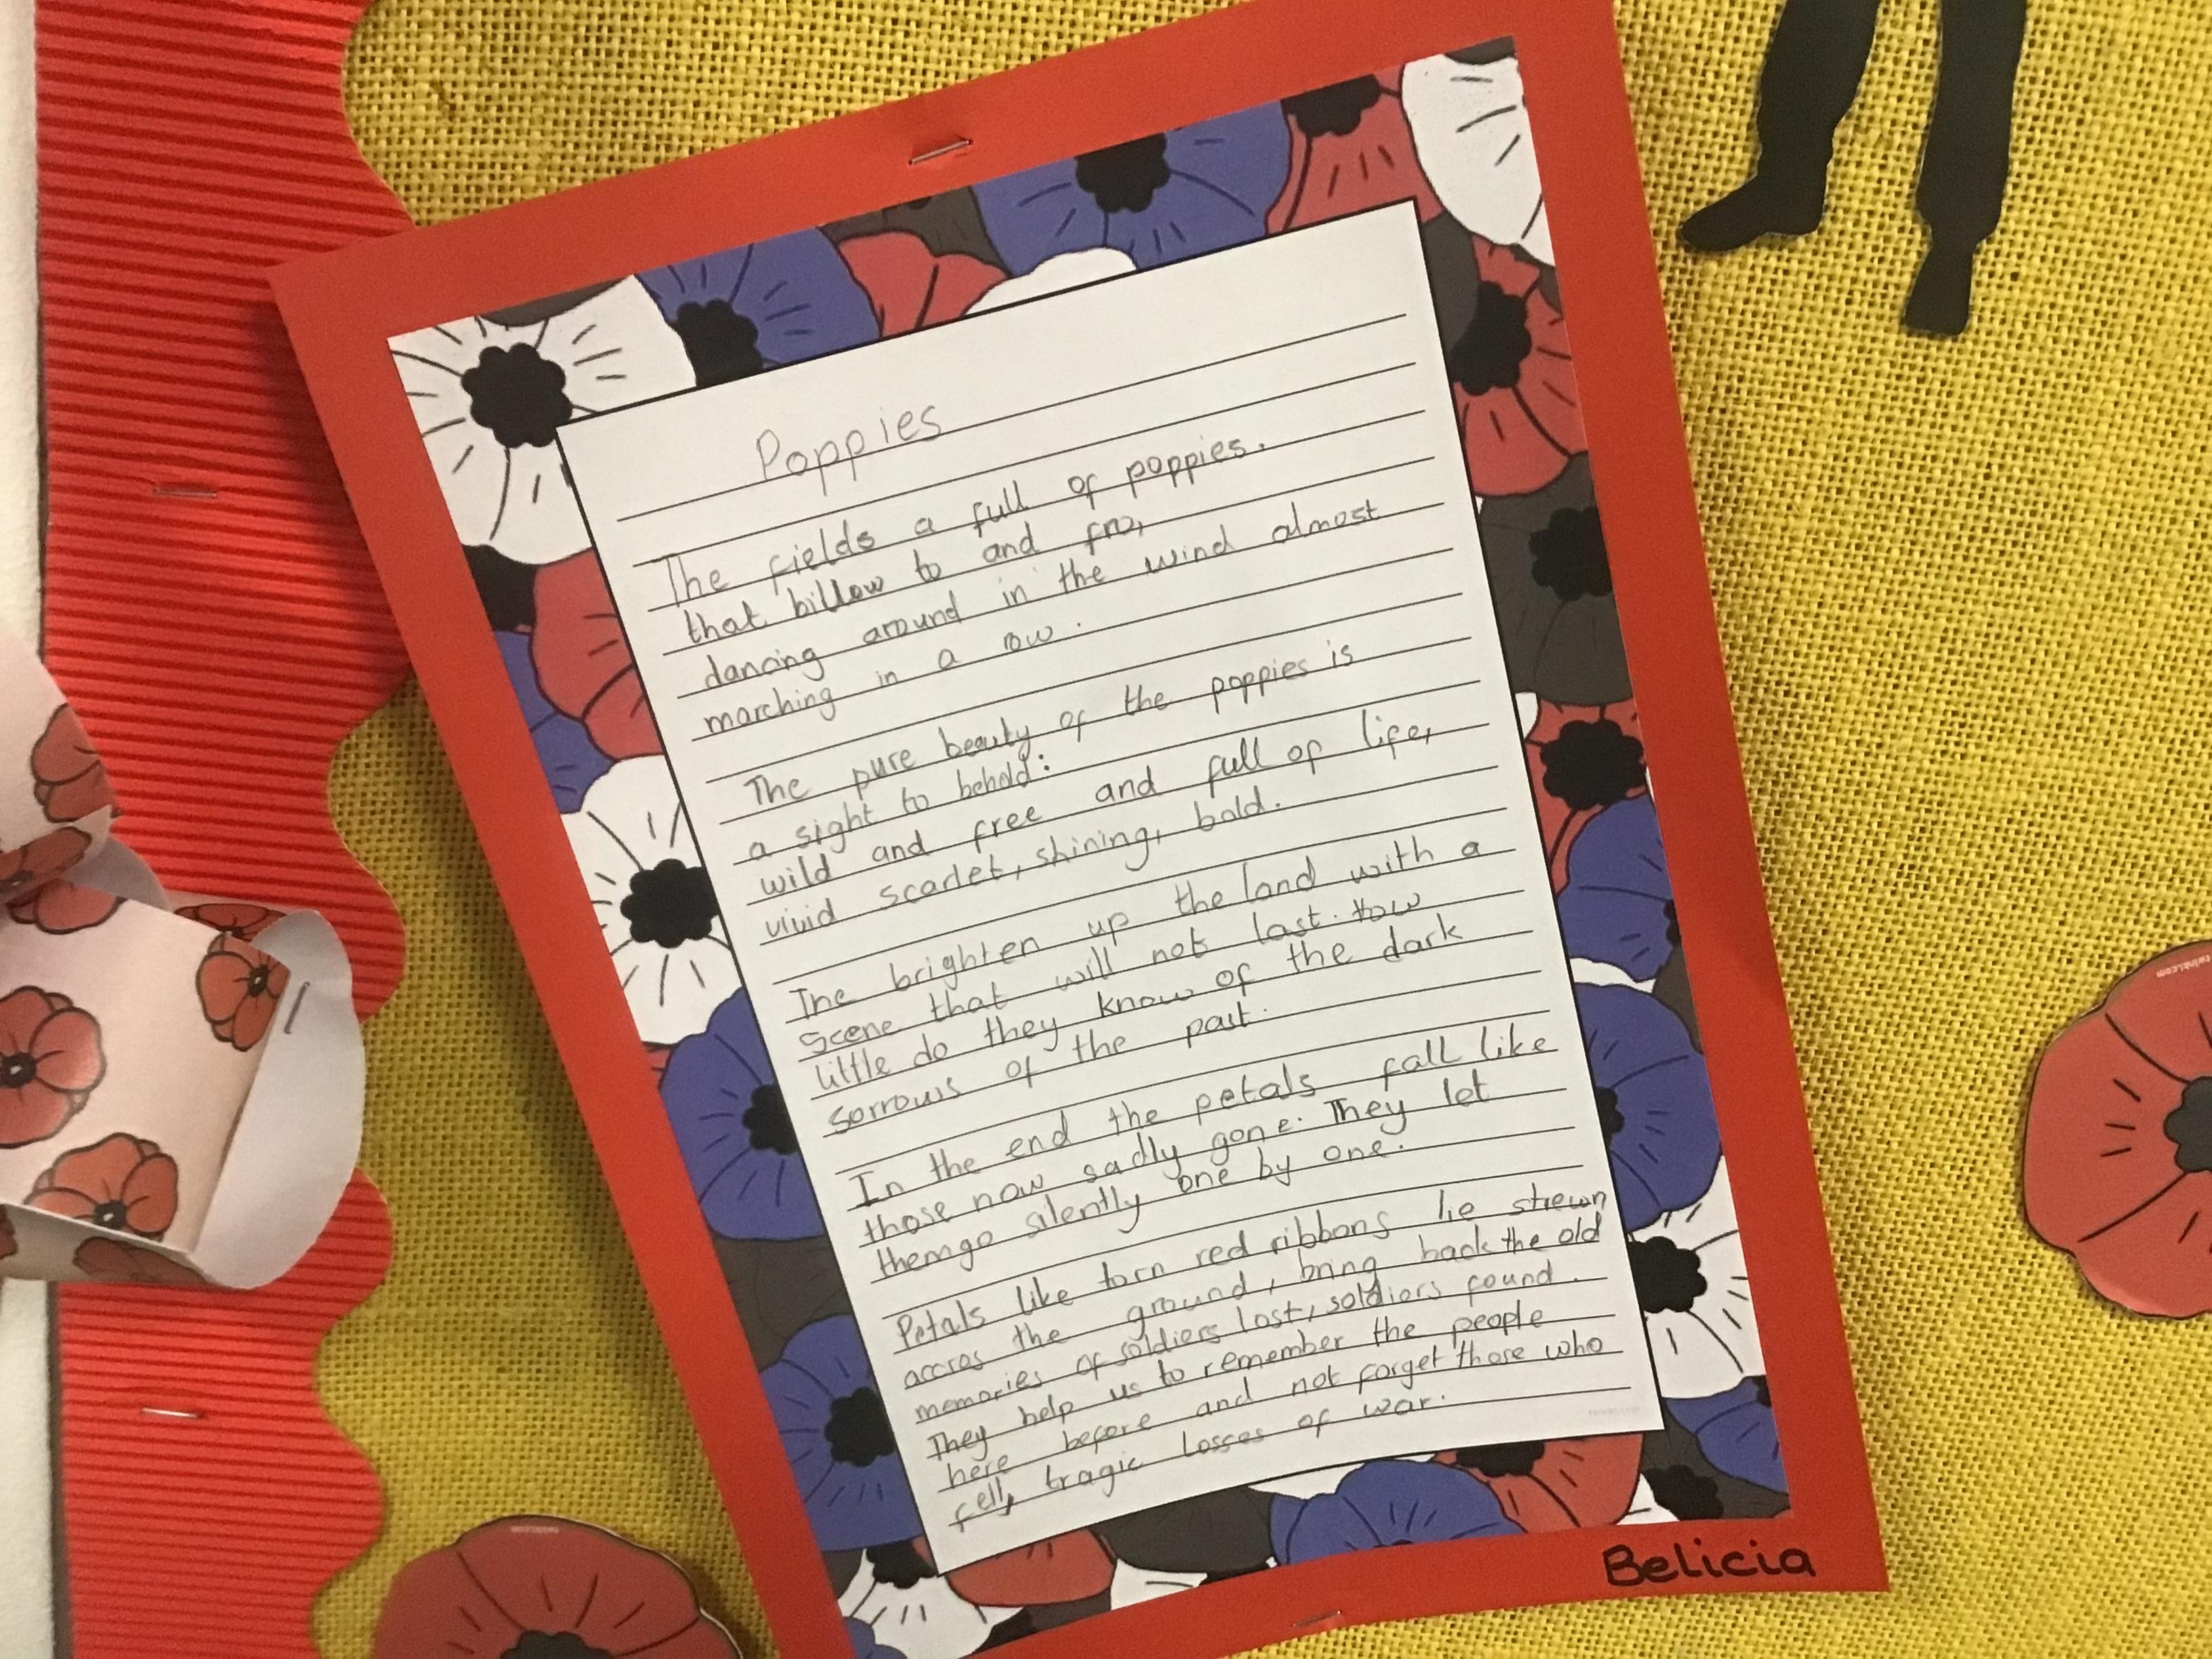 Poppies
The fields a full of poppies.
that billow to and fro,
dancing around in the wind almost
marching in a row.
The pure beauty of the poppies is
a sight to behold:
wild and free and full of life,
vivid scarlet, shining, bold.
The brighten up the land with a
scene that will not last. How
little do they know of the dark
sorrows of the past.
In the end the petals fall like
those now sadly gone. They let
them go silently one by one.
Petals like torn red ribbons lie strewn
accros the ground, bring back the old
memories of soldiers lost, soldiers found.
They help us to remember the people
here before and not forget those who
fell, tragic losses of war.
Belicia
twinkl.com
twinkl.com